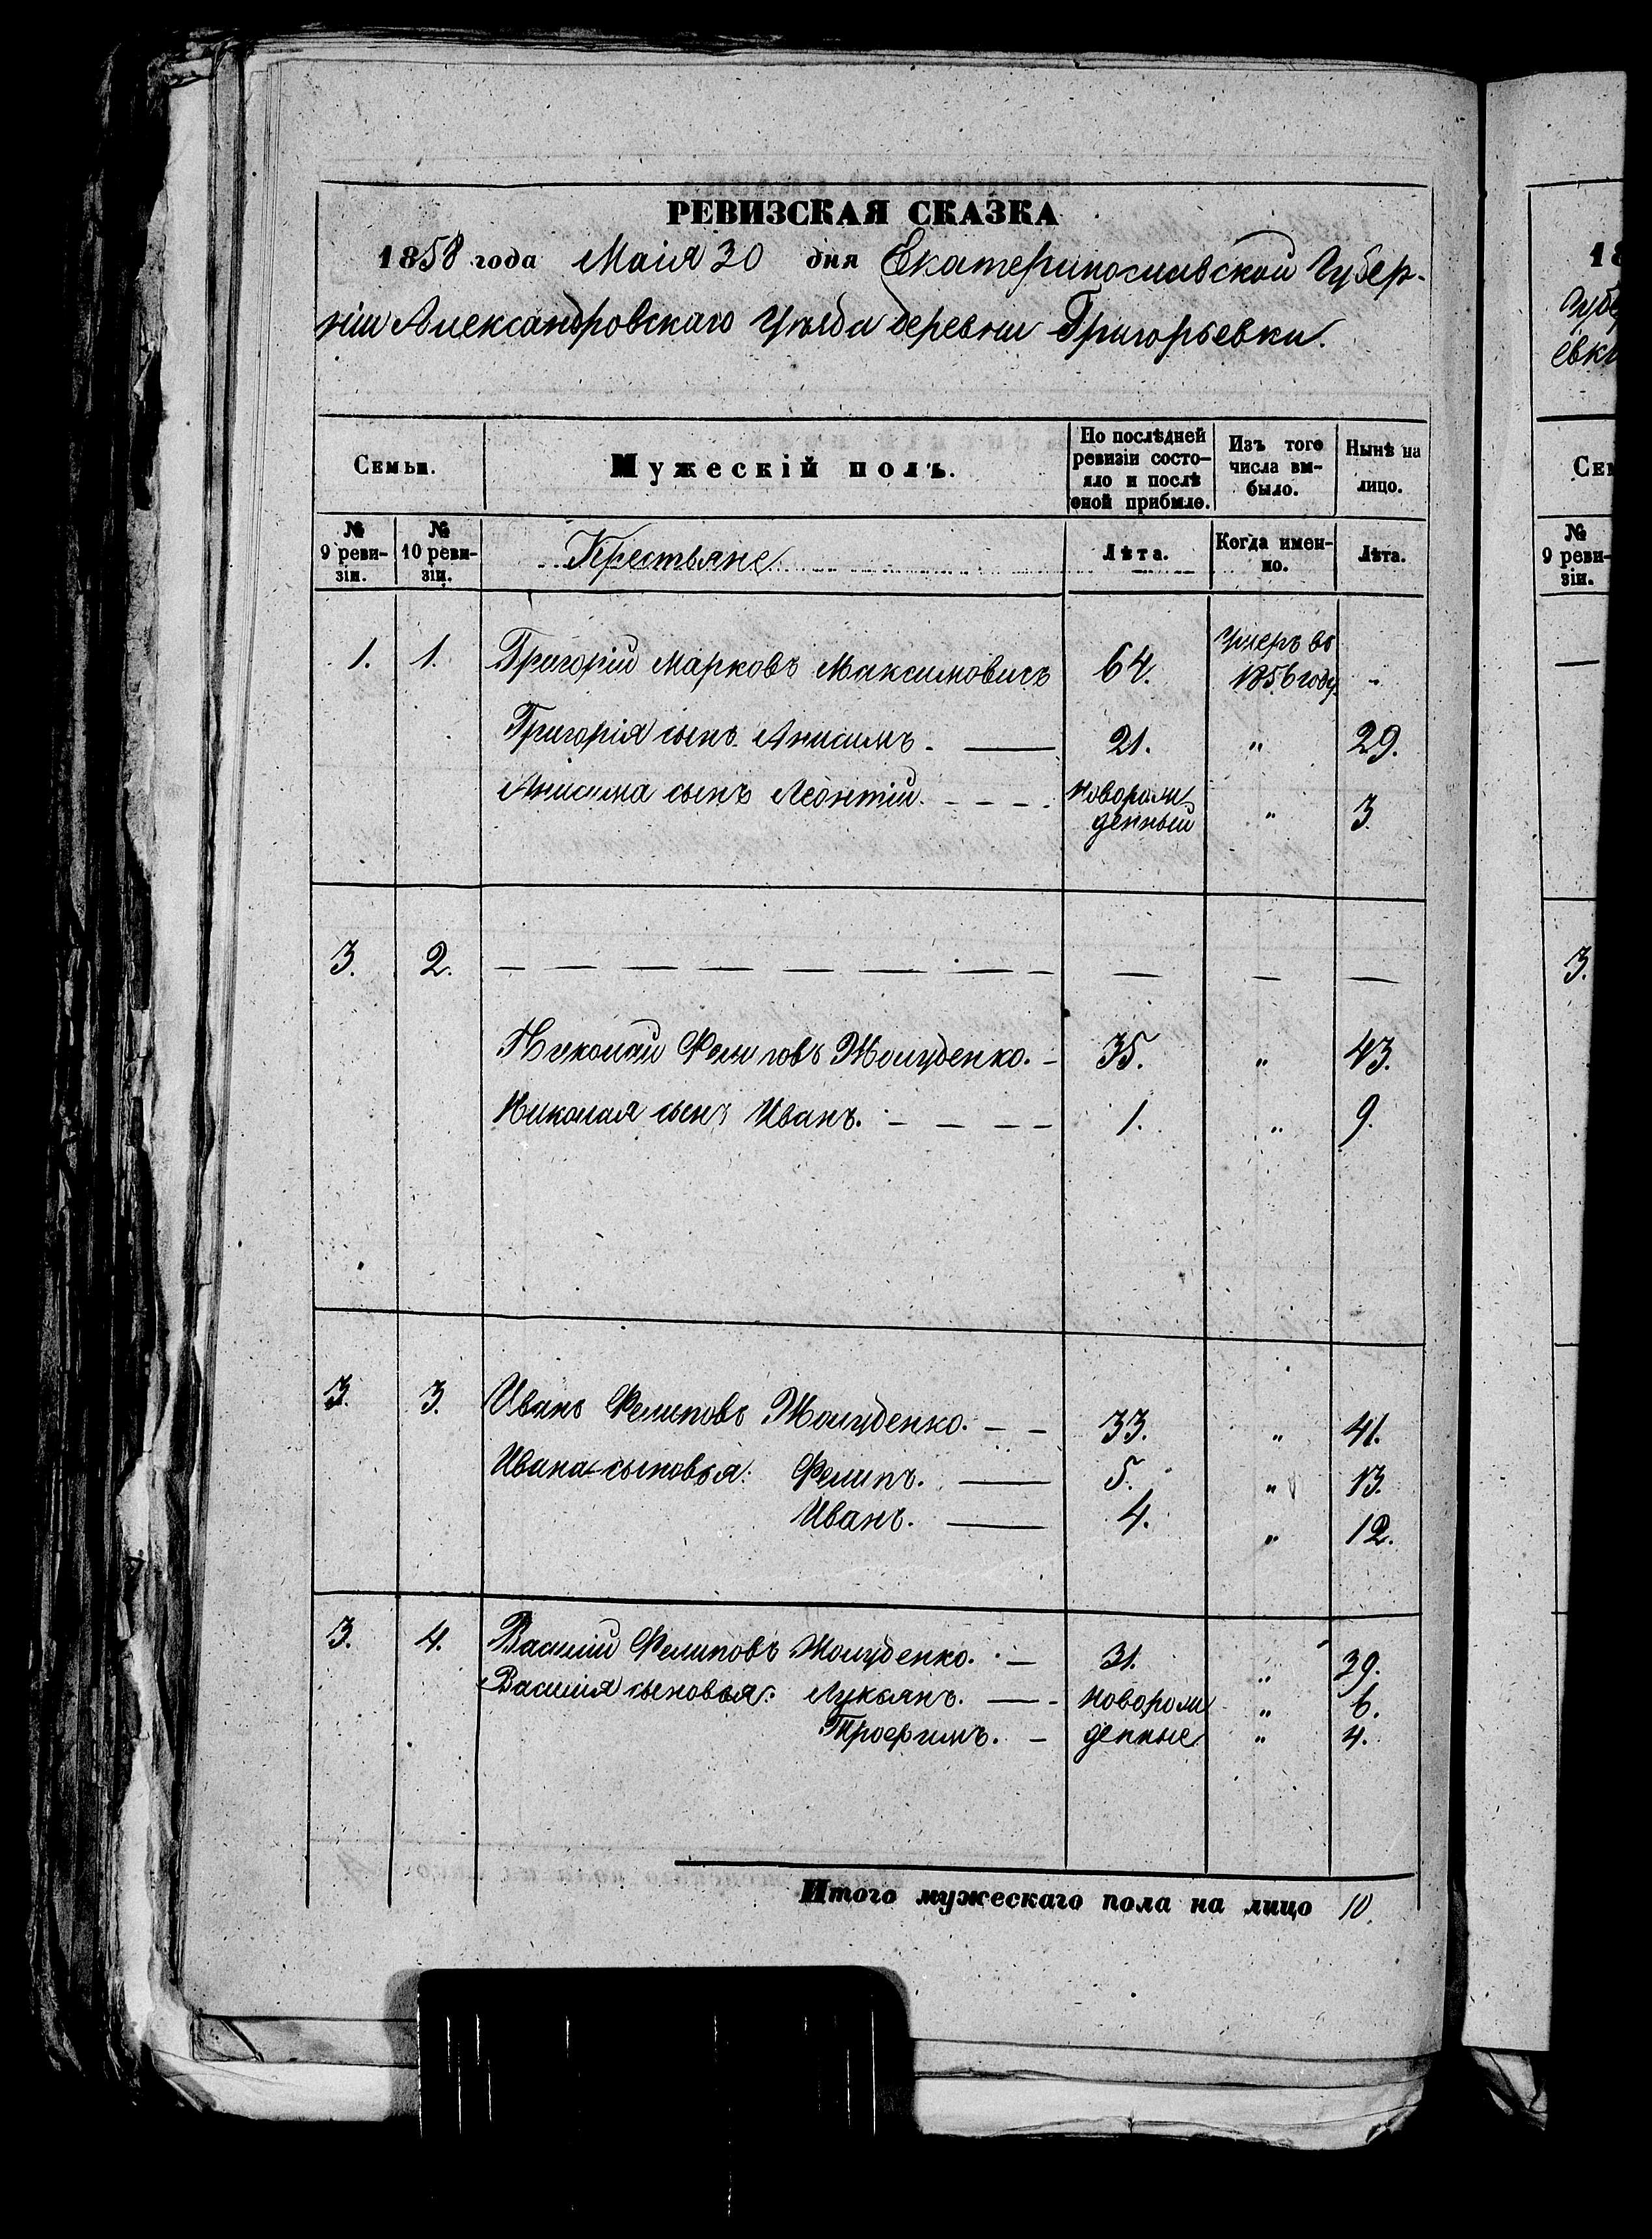 РЕВИЗСКАЯ СКАЗКА
1858 года Маія 30 дня Екатеринославской Губер-
ніи Александровскаго Уѣзда деревни Григорьевки.
Семьи. Мужескій полъ. По послѣдней ревизіи состо- яло и послѣ оной прибыло. Изъ того числа вы- было. Нынѣ на лицо.
№ 9 реви- зіи. № 10 реви- зіи. Крестьяне Лѣта. Когда имен- но. Лѣта.
1. 1. Григорій Марковъ Максимовичъ 64. Умеръ въ 1856 году. -
Григорія сынъ Анисимъ. — 21. " 29.
Анисима сынъ Леонтій. - - - - Новорож денный " 3.
3. 2. — — — — — — — — — — —
Николай Фелиповъ Жолуденко. - 35. " 43.
Николая сынъ Иванъ. - — - - - 1. " 9.
3. 3. Иванъ Фелиповъ Жолуденко. — — 33. " 41.
Ивана сыновья: Фелипъ. — 5. " 13.
Иванъ. — 4. " 12.
3. 4. Василій Фелиповъ Жолуденко. - — 31. " 39.
Василія сыновья: Лукьянъ. — - Новорож " 6.
Трофимъ. - денные " 4.
Итого мужескаго пола на лицо 10.
18
Губе
евки
Сем
№
9 реви-
зіи.
—
3.